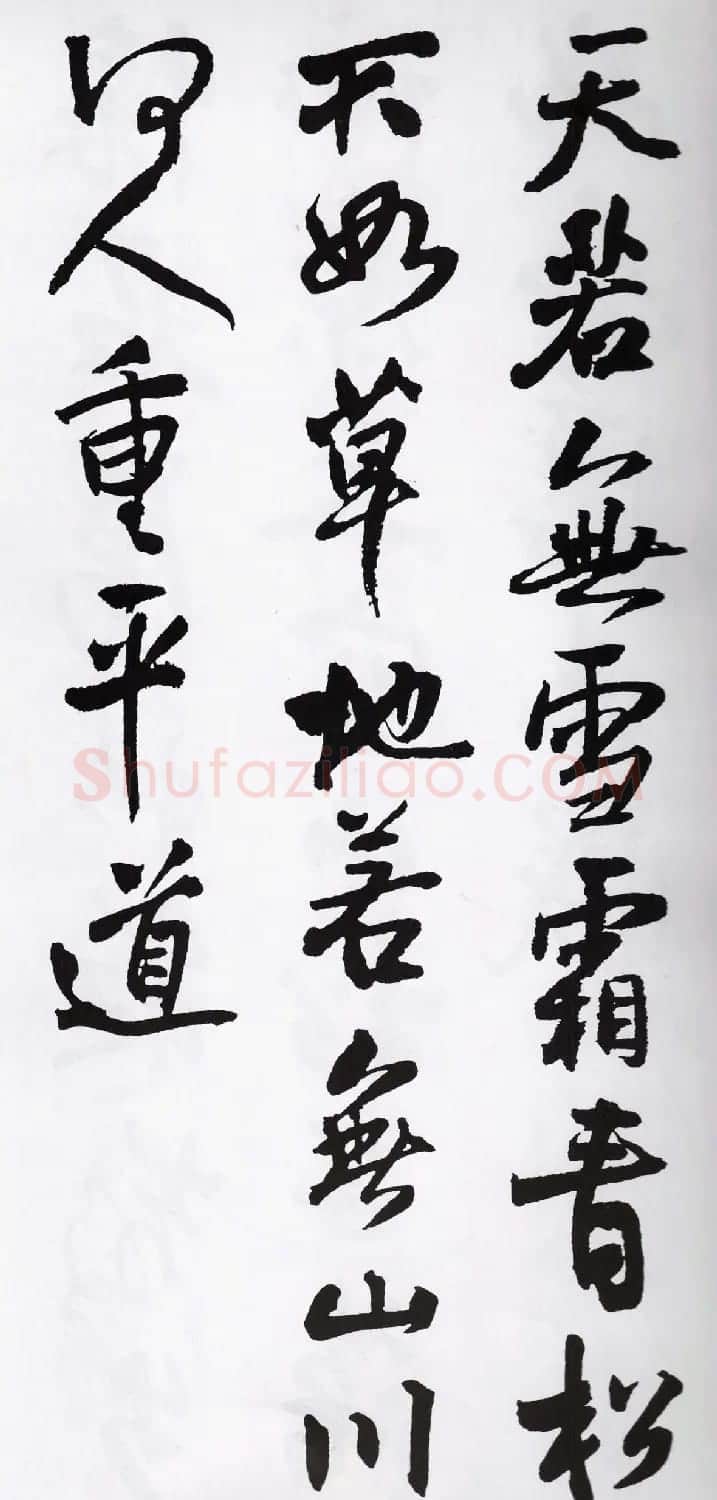 天若無雪霜青松
不如草地若無山川
何人重平道
Shufaziliao.COM